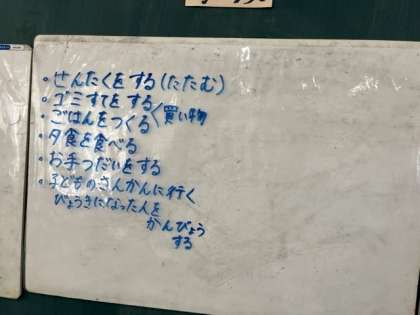 ・せんたくをする(たたむ)
・ゴミすてをする
・ごはんをつくる〈買い物
・夕食を食べる
・お手つだいをする
・子どものさんかんに行く
びょうきになった人を
かんびょう
する